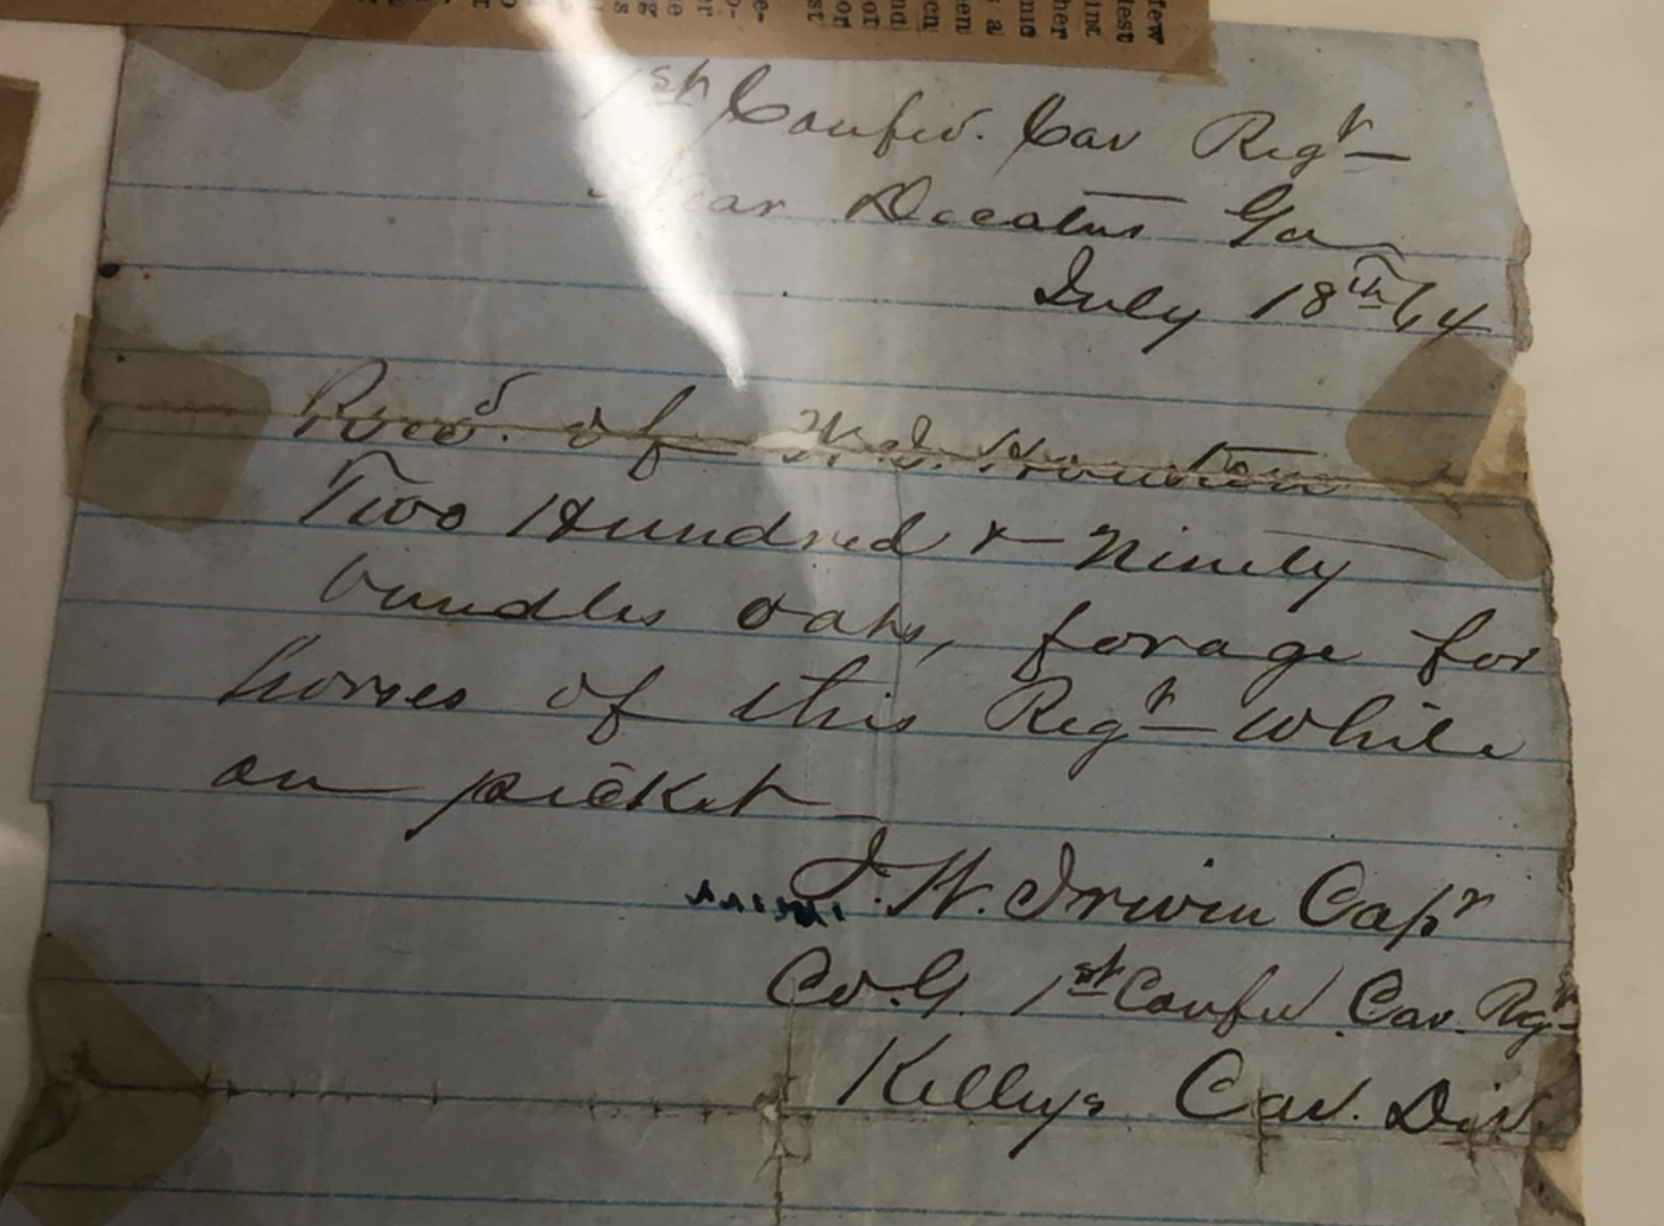 few
dest
her
a
1st Confed. Cav Regt
Near Decatur Ga
July 18th 64
Recd. of Houston
Two Hundred & Ninety
bundles oats, forage for
horses of this Regt while
on picket
J. W. Irwin Capt
Co. G. 1st Confed Cav. Regt
Kellys Cav. Div.